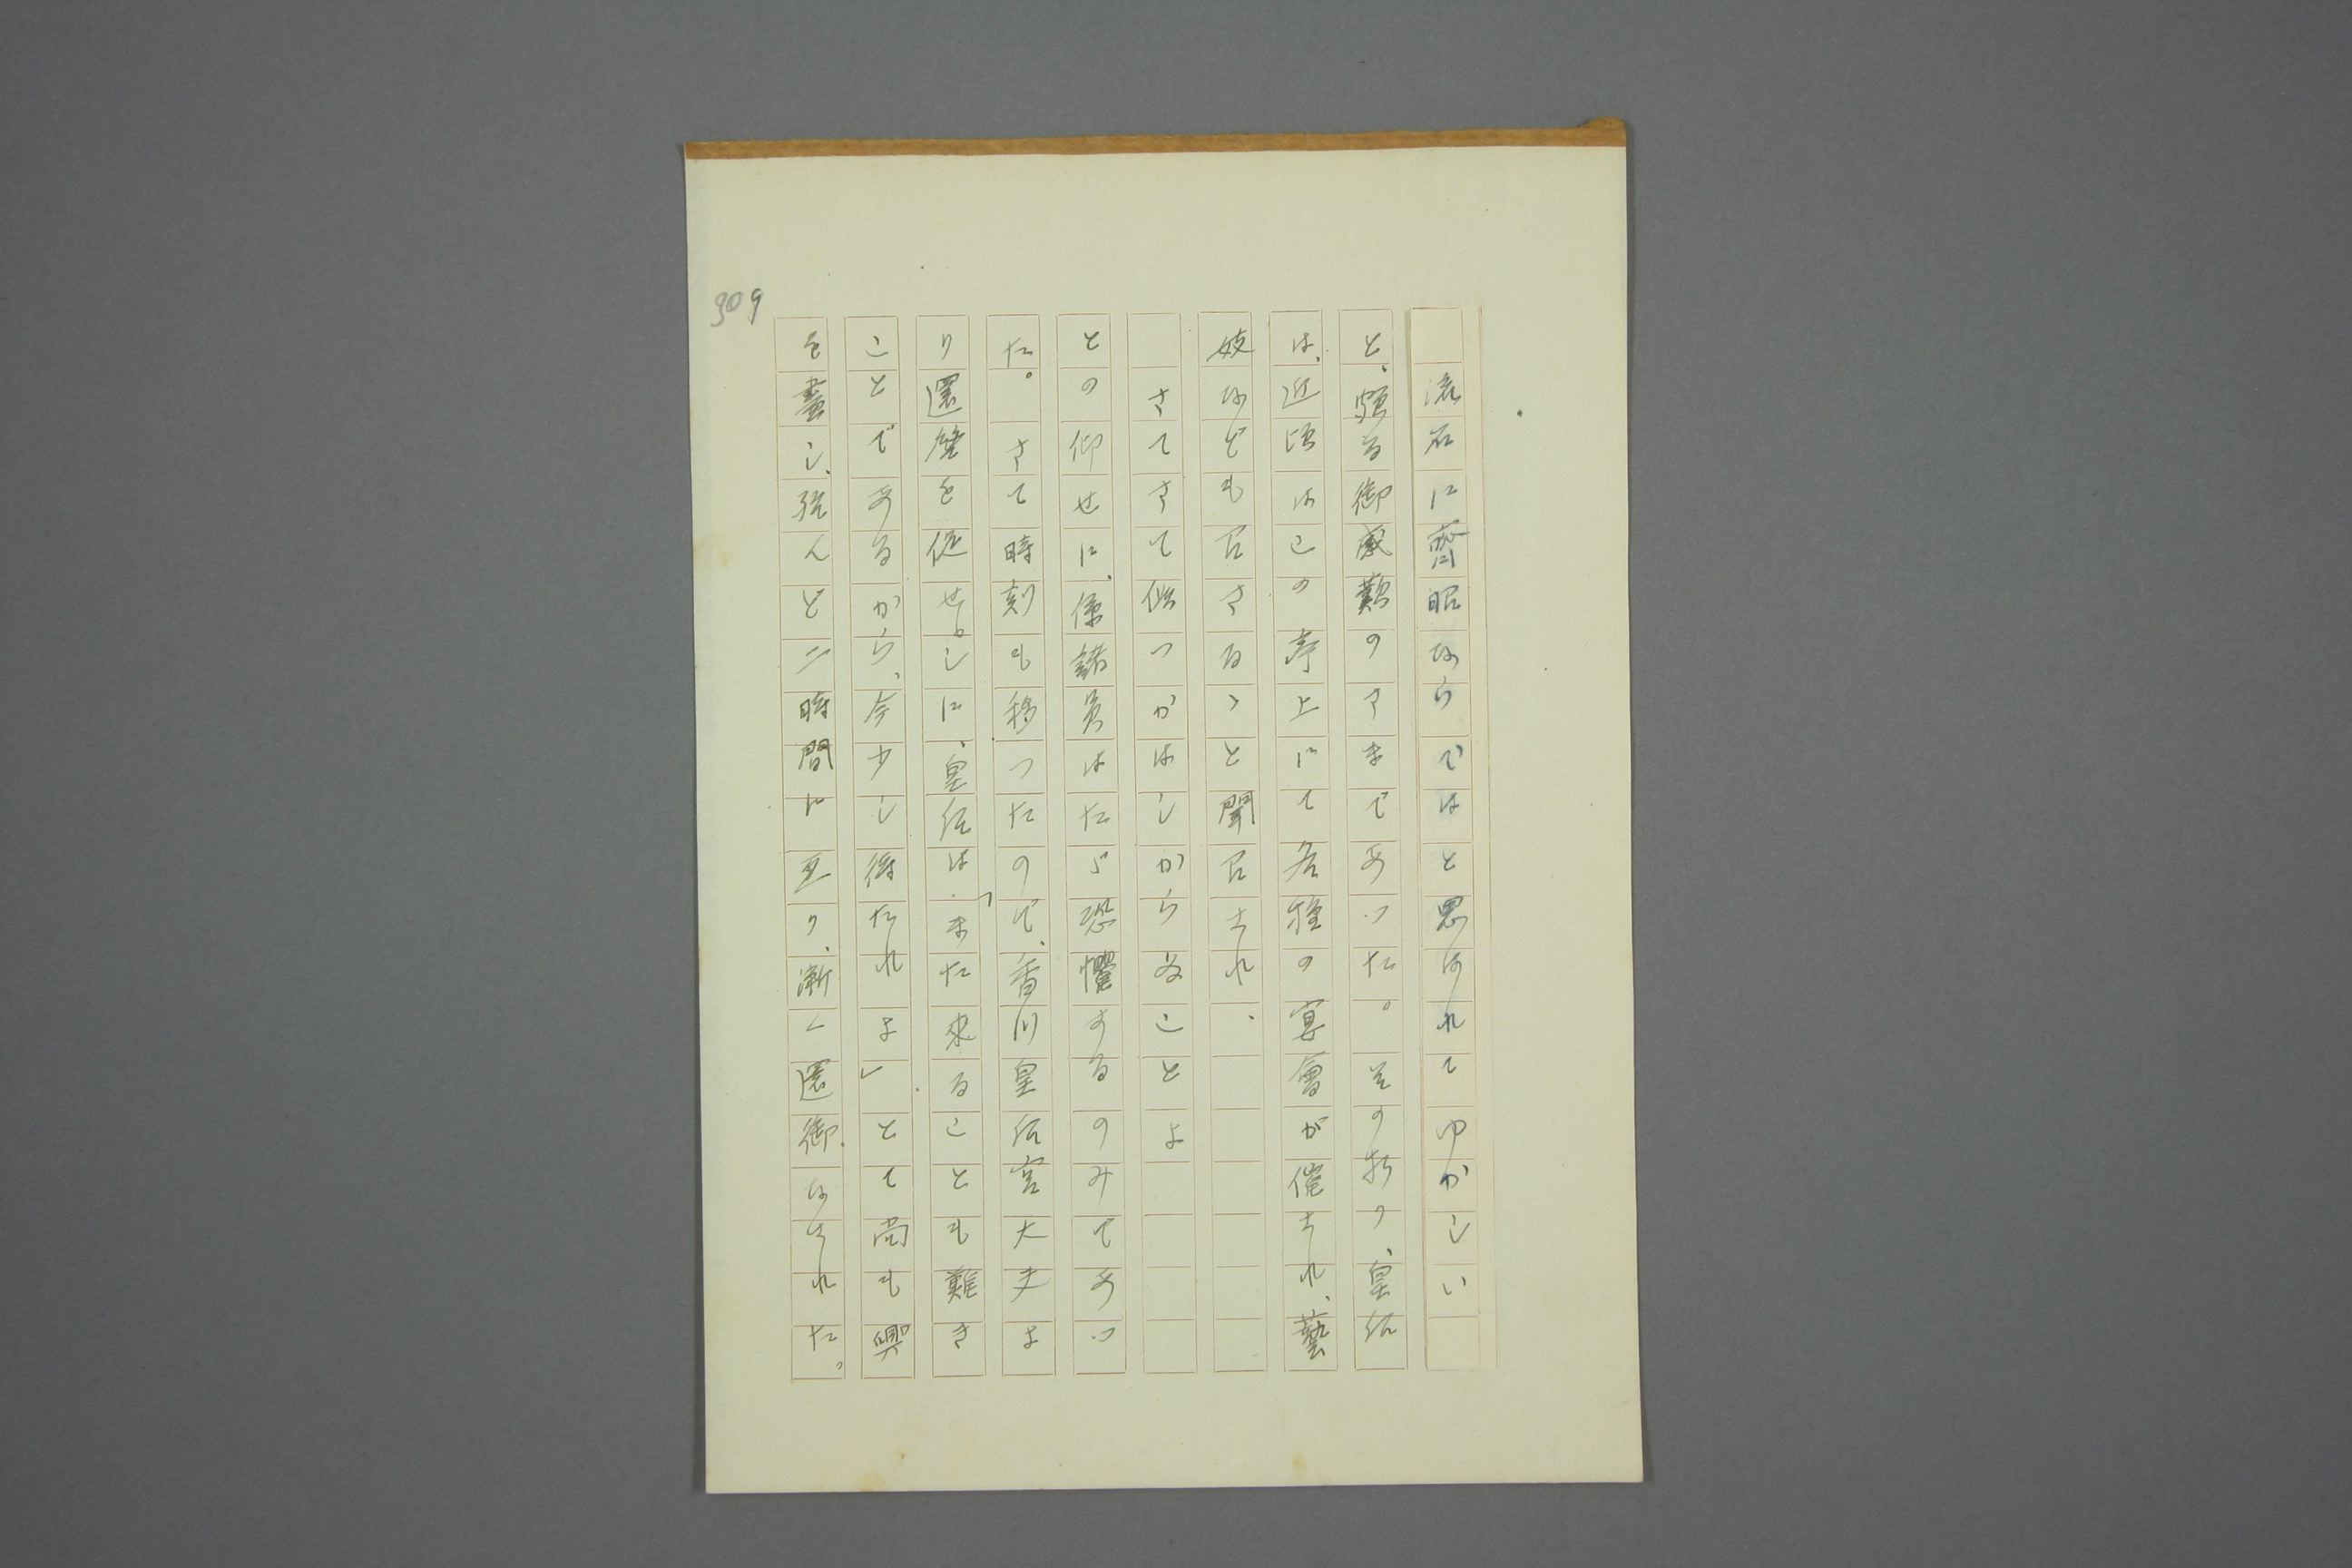 流石に齊昭ならではと思はれてゆかしい
と、頻る御感歎のさまであつた。その折り、皇后
は、近頃はこの亭上にて各種の宴會が催され、藝
妓なども召さるゝと聞召され、
さてさて似つかはしからぬことよ
との仰せに、係諸員はたゞ恐懼するのみであつ
た。さて時刻も移つたので、香川皇后宮大夫よ
り還啓を促せしに、皇后は「また來ることも難き
ことであるから、今少し待たれよ」とて尚も興
を盡し、殆んど二時間に亙り、漸く還御なされた。
309